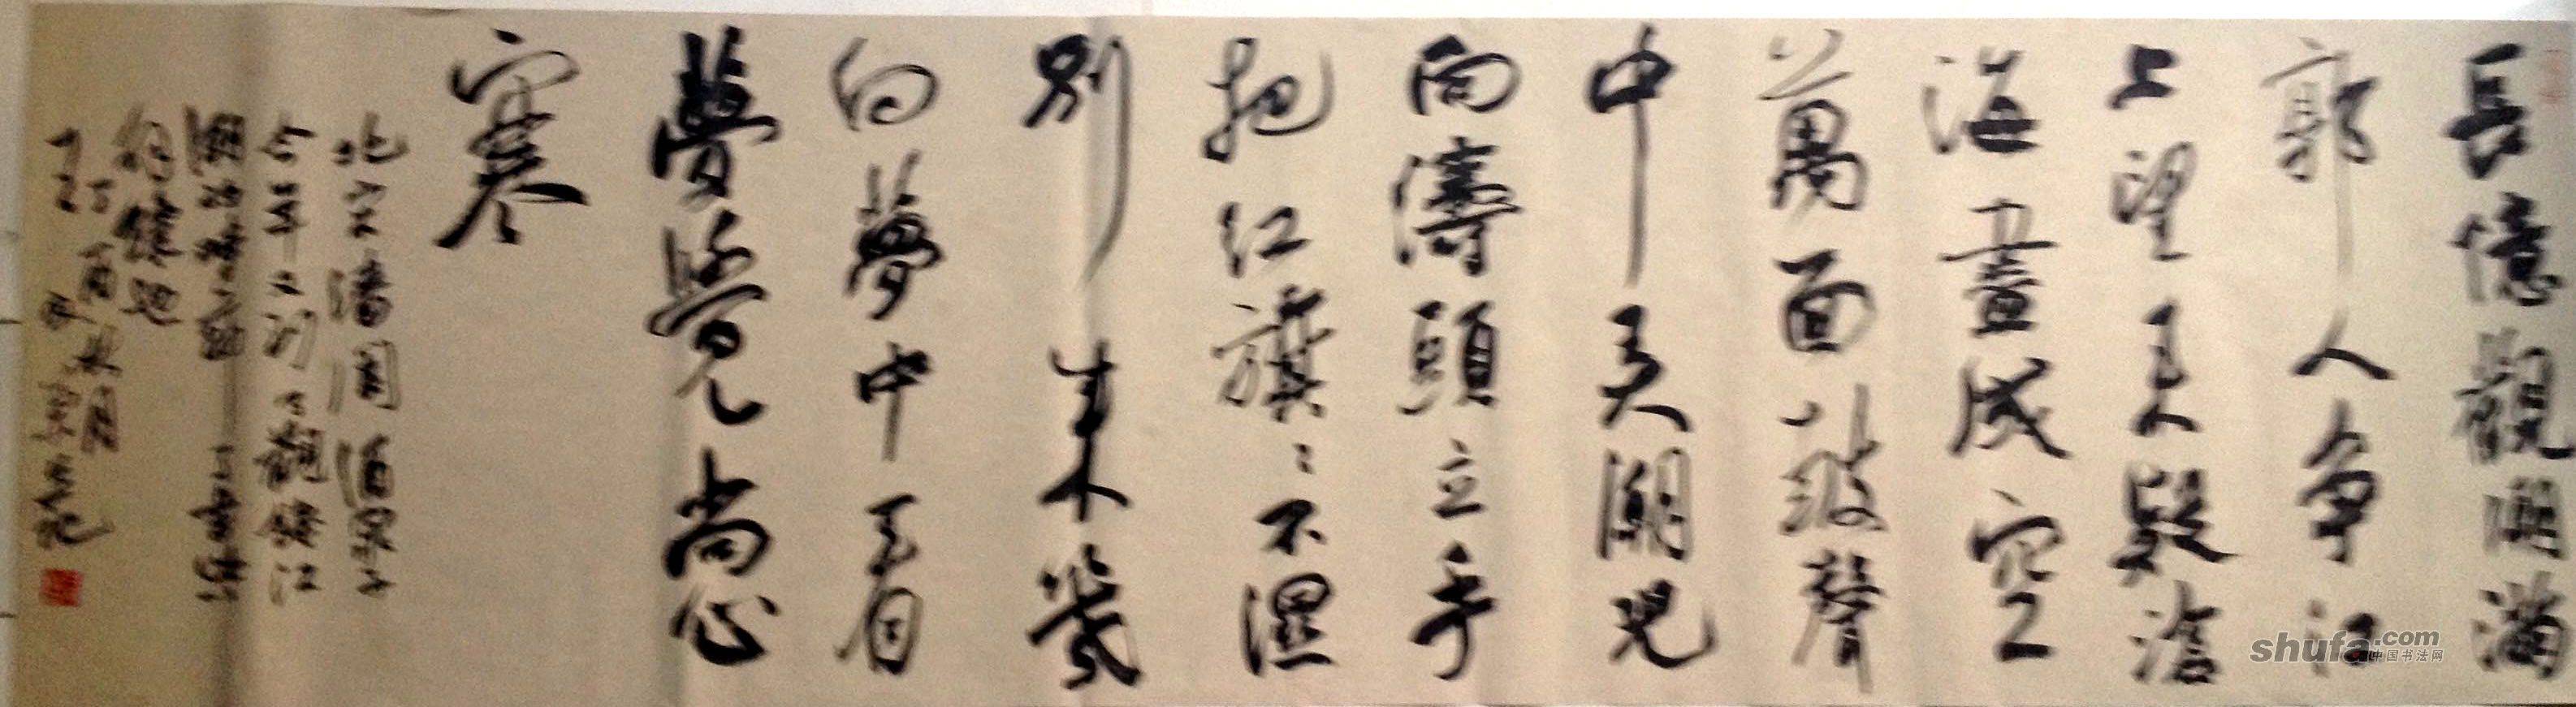 長憶觀潮滿
郭人争江
上望来疑滄
海盡成空
萬面鼓聲
中弄潮児
向濤頭立手
把紅旗〻不濕
別来幾
向夢中看
夢覺尚心
寒
北宋潘閬酒泉子
觀錢江
shufa.com
中国书法网